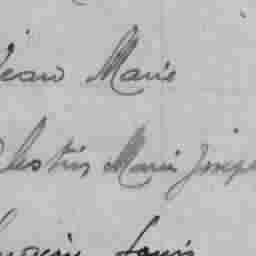 Jean Marie
lestin Marie Joseph
Louis